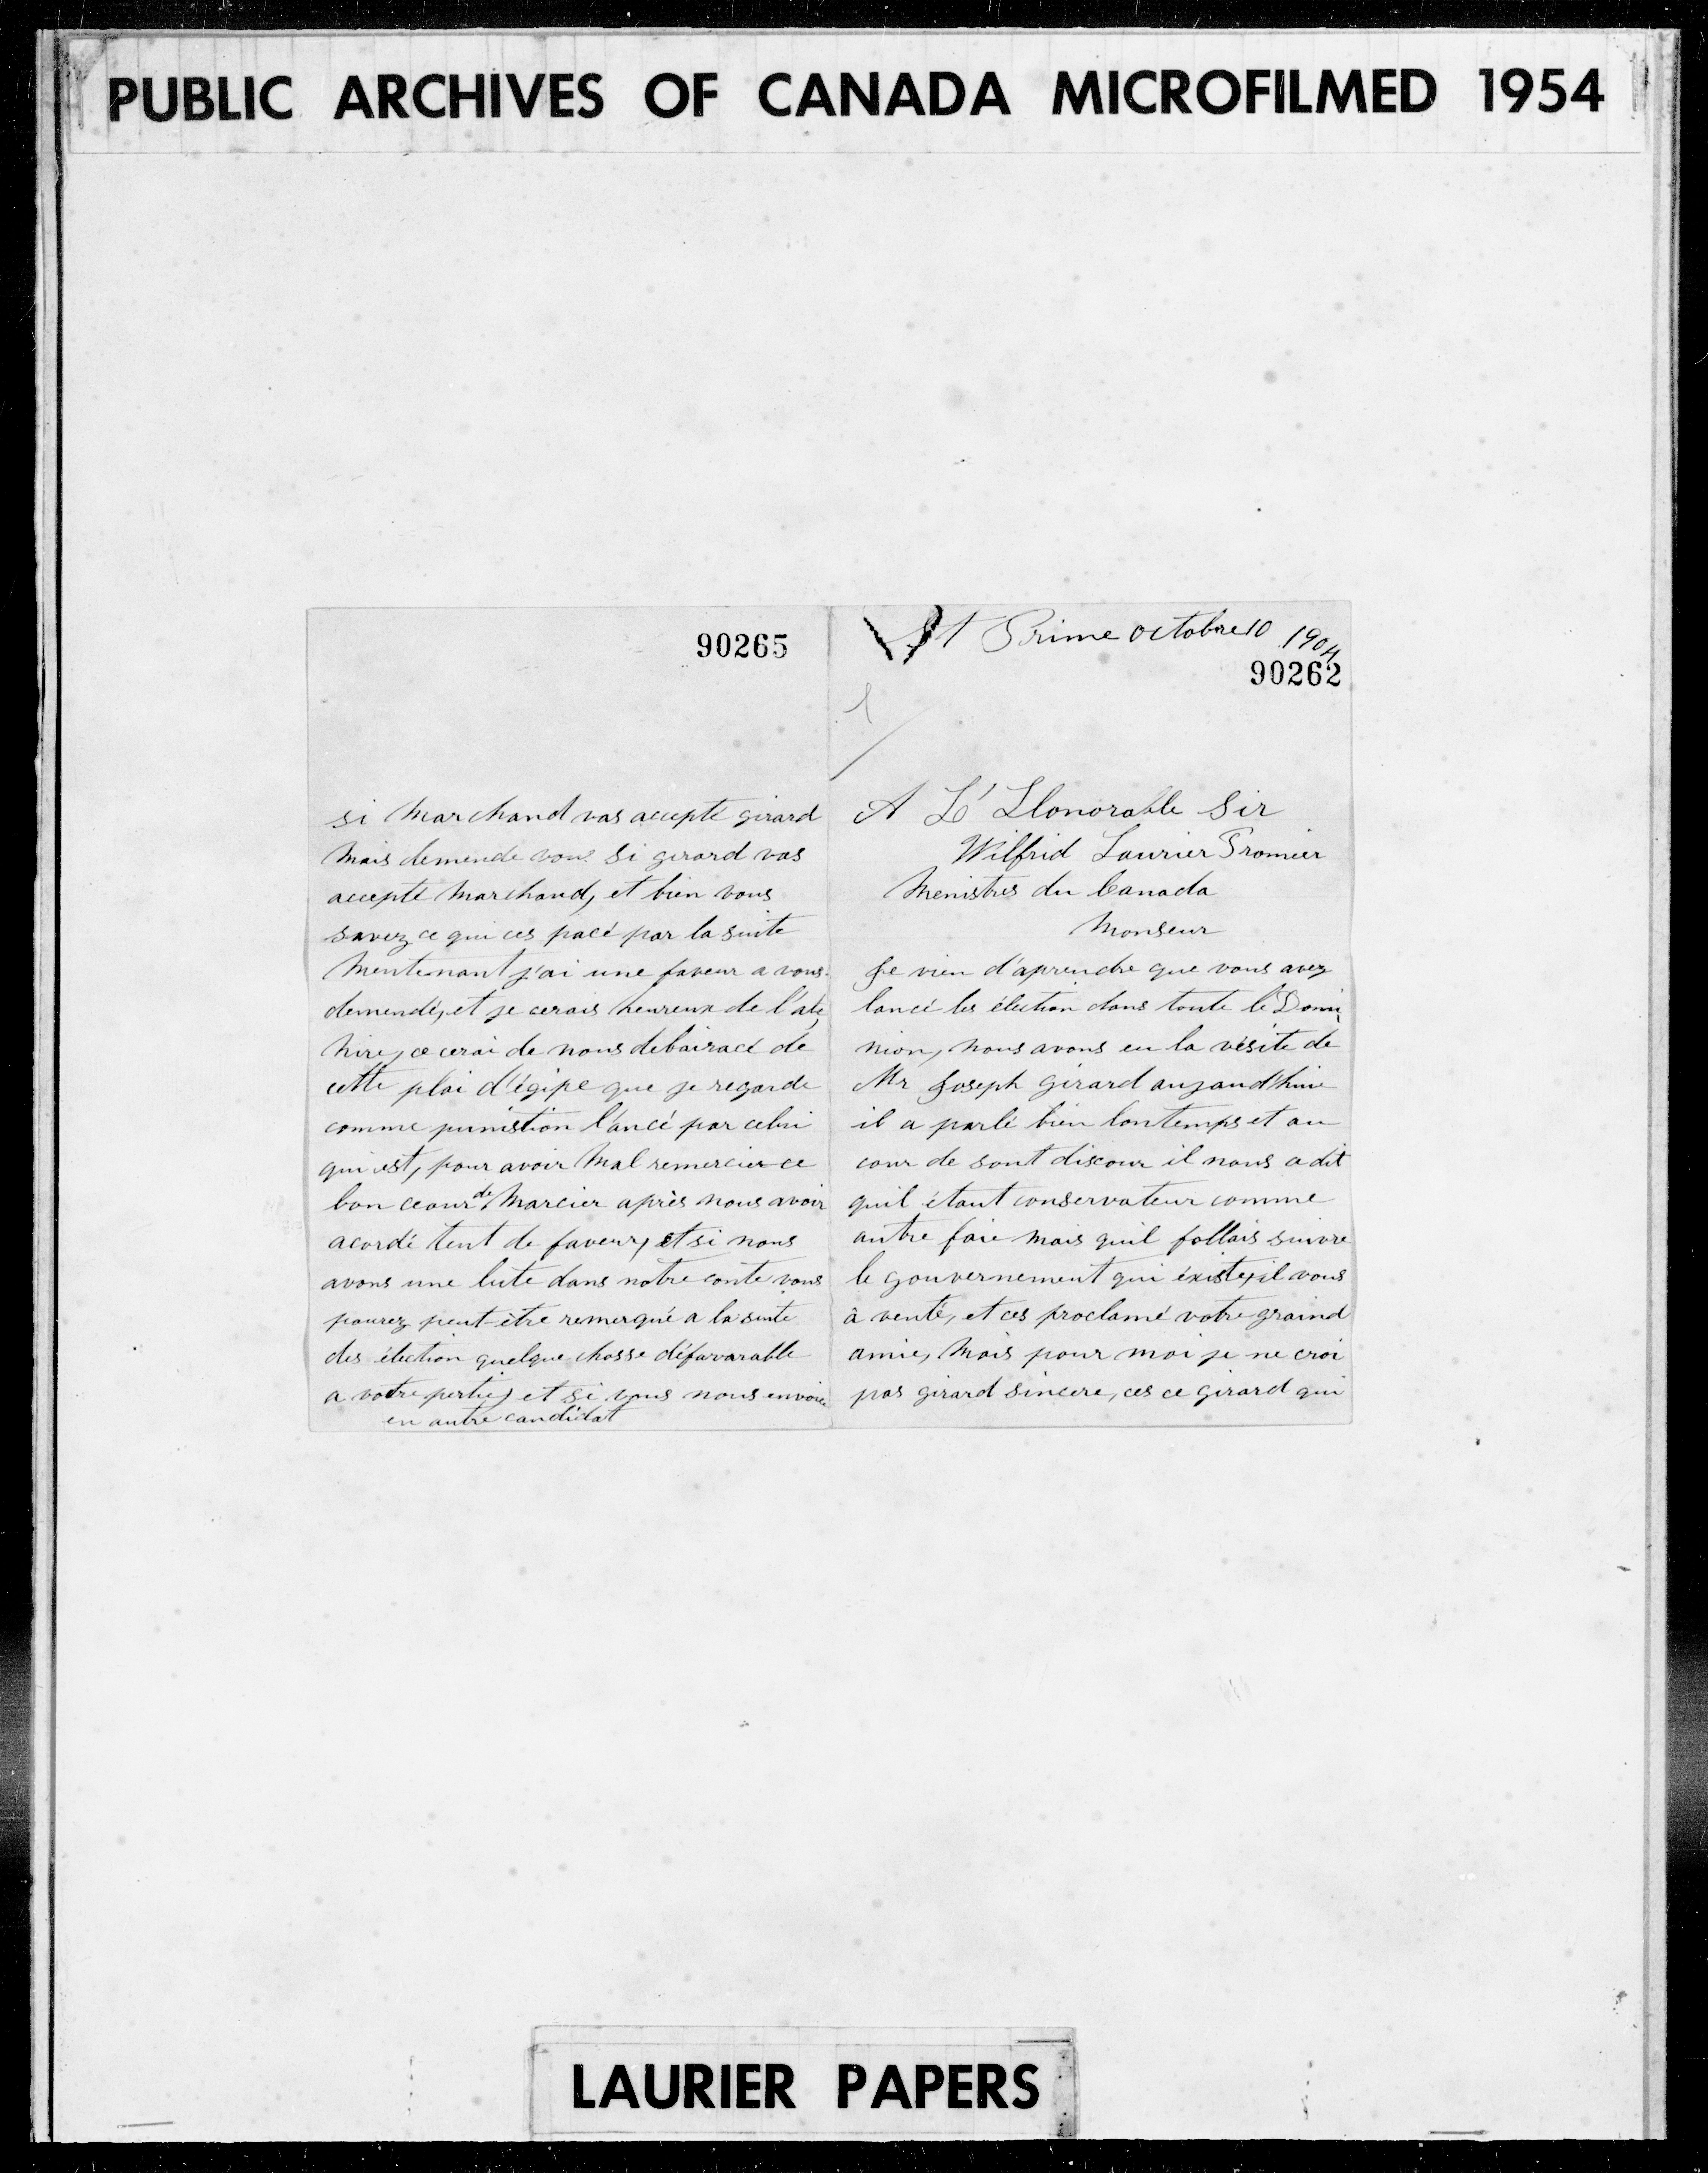 PUBLIC ARCHIVES OF CANADA MICROFILMED 1954
90265
si Marchand vas accepté girard
Mais demende vous si girard vas
accepté Marchand, et bien vous
savez ce qui ces pacé par la suite
Mentenant j'ai une faveur a vous
demendé, et je cerais heureux de l'abe,
nire, ce cerai de nous debairacé de
cette plai d'égipe que je regarde
comme punistion l'ancé par celui
qui est, pour avoir Mal remercier ce
bon ceour de Marcier après nous avoir
acordé tent de faveur, et si nous
avons une lute dans notre conte vous
pourez peut-être remerqué a la suite
des élection quelque chosse défavarable
a votre pertie, et si vous nous envoie
en autre candidat
St Prime octobre 10 1904
90262
1
A L' Llonorable Sir
Wilfrid Laurier Promier
Menistres du Canada
Monseur
Je vien d'aprendre que vous avez
lancé les élection dans toute le Domi
nion, nous avons eu la vésite de
Mr Joseph Girard aujaud'hui
il a parlé bien lontemps et au
cour de sont discour il nous a dit
quil étant conservateur comme
autre foie mais quil follais suivre
le gouvernement qui éxiste, il vous
à venté, et ces proclamé votre graind
amie, Mais pour moi je ne croi
pas girard sincere, ces ce girard qui
LAURIER PAPERS